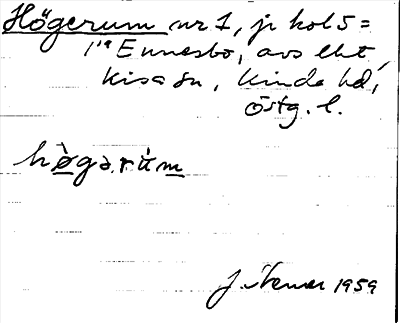 Högerum nr 1, jr kol 5 =
1/1 Ennesbo, avs lht,
Kisa sn, Kinda hd,
Östg. l.
hø̀gərùm
1959